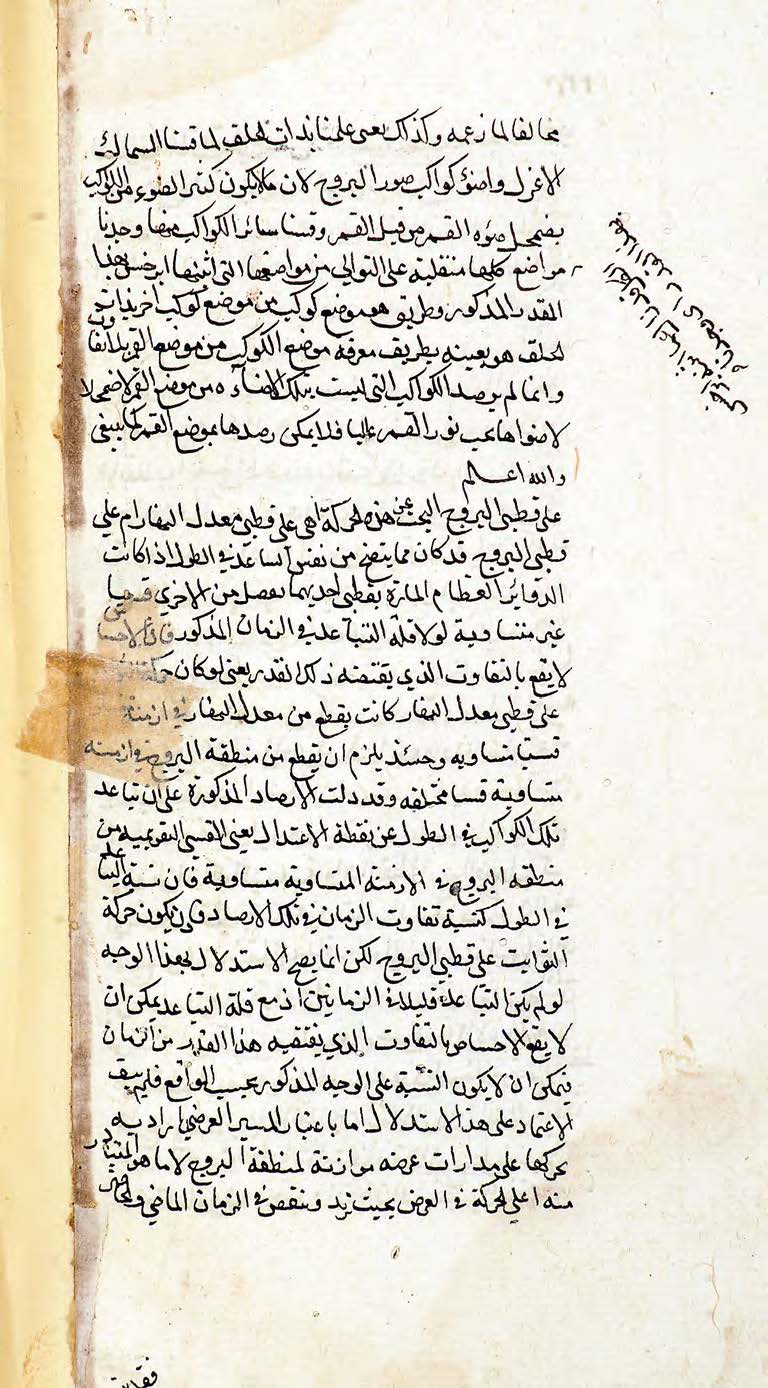 مخالفا لما زعمه وكذلك يعنى علمنا بذات الحلق لما قسنا السماك
الاعزل واضؤ كواكب صور البروج لان ما لا يكون كثير الضوء من الكواكب
يضمحل ضوءه القمر من قبل القمر وقسنا سائر الكواكب منها وجدنا
مواضع كلها منتقلة على التوالي من مواضعها التى اثبتها ابرخس بهذا
القدر المذكور وطريق هو موضع كوكب من موضع كوكب اخر بذات
الحلق هو بعينه طريق معرفة موضع الكوكب من موضع القمر بلا تفاوت
وانما لم يرصد الكواكب التى ليست بتلك الاضاءة من موضع القمر لاضمحلا
لاضواها بحب نور القمر عاليا فلا يمكن رصدها بموضع القمر كما ينبغى
والله اعلم
على قطبى البروج البحث عن هذه الحركة اهى على قطبى معدل النهار ام على
قطبى البروج قد كان مما يتضح من نفس التباعد في الطول اذا كانت
الدوائر العظام المارة بقطبى احديهما تفصل من الاخرى قسيا
غير متساوية لولا قلة التباعد في الزمان المذكور فان الاحساس
لا يقع بالتفاوت الذي يقتضه ذلك القدر يعنى لو كان حركة
على قطبى معدل النهار كانت يقطع من معدل النهار في ازمنة
قسيا متساويه وحينئذ يلزم ان يقطع من منطقة البروج في ازمنه
متساوية قسيا مختلفه وقد دلت الارصاد المذكورة على ان تباعد
تلك الكواكب في الطول عن نقطة الاعتدال يعنى القسى التقويمية من
منطقه البروج في الازمنه المتساويه متساوية فان نسبة التباعد
في الطول كنسبة تفاوت الزمان في تلك الارصاد فاذن يكون حركة
الثوابت على قطبى البروج لكن انما يصح الاستدلال بهذا الوجه
لو لم يكن التباعد قليلا في الزمانين اذ مع قلة التباعد يمكن ان
لا يقع الاحساس بالتفاوت الذي يقتضيه هذا القدر من الزمان
فيمكن ان لا يكون النسبة على الوجه المذكور بحسب الواقع فلم يبق
الاعتماد على هذا الاستدلال اما باعتبار المسير العرضى اراد به
تحركها على مدارات عرضه موازنة لمنطقة البروج لا ما هو المتبادر
منه اعنى الحركة في العرض بحيث تزيد وتنقص في الزمان الماضى والحاضر